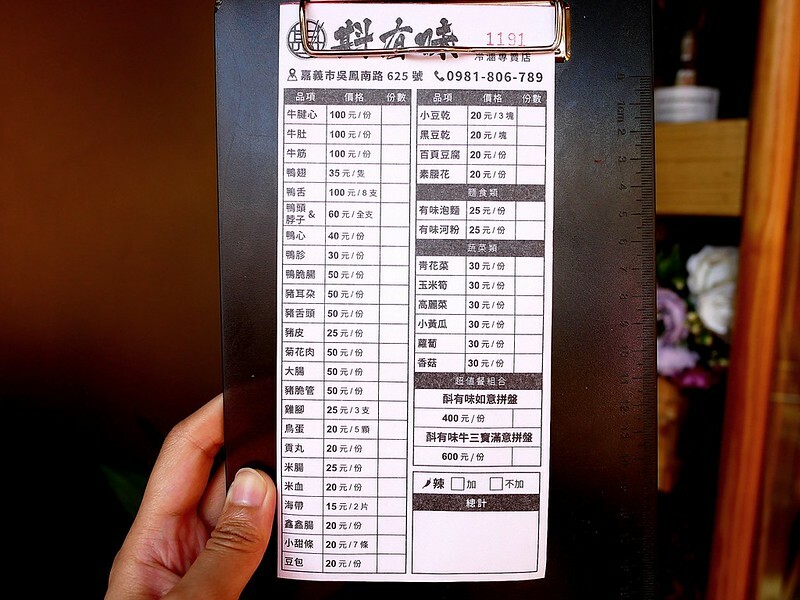 斟有味
1191
冷滷專賣店
嘉義市吳鳳南路 625 號 0981-806-789
品項 價格 份數
牛腱心 100 元/份
牛肚 100 元/份
牛筋 100 元/份
鴨翅 35 元/隻
鴨舌 100 元/8 支
鴨頭 & 脖子 60 元/全支
鴨心 40 元/份
鴨胗 30 元/份
鴨脆腸 50 元/份
豬耳朶 50 元/份
豬舌頭 50 元/份
豬皮 25 元/份
菊花肉 50 元/份
大腸 50 元/份
豬脆管 50 元/份
雞腳 25 元/3 支
鳥蛋 20 元/5 顆
貢丸 20 元/份
米腸 25 元/份
米血 20 元/份
海帶 15 元/2 片
鑫鑫腸 20 元/份
小甜條 20 元/7 條
豆包 20 元/份
品項 價格 份數
小豆乾 20 元/3 塊
黑豆乾 20 元/塊
百頁豆腐 20 元/份
素腰花 20 元/份
麵食類
有味泡麵 25 元/份
有味河粉 25 元/份
蔬菜類
青花菜 30 元/份
玉米筍 30 元/份
高麗菜 30 元/份
小黃瓜 30 元/份
蘿蔔 30 元/份
香菇 30 元/份
超值餐組合
斟有味如意拼盤
400 元/份
斟有味牛三寶滿意拼盤
600 元/份
辣 加 不加
總計